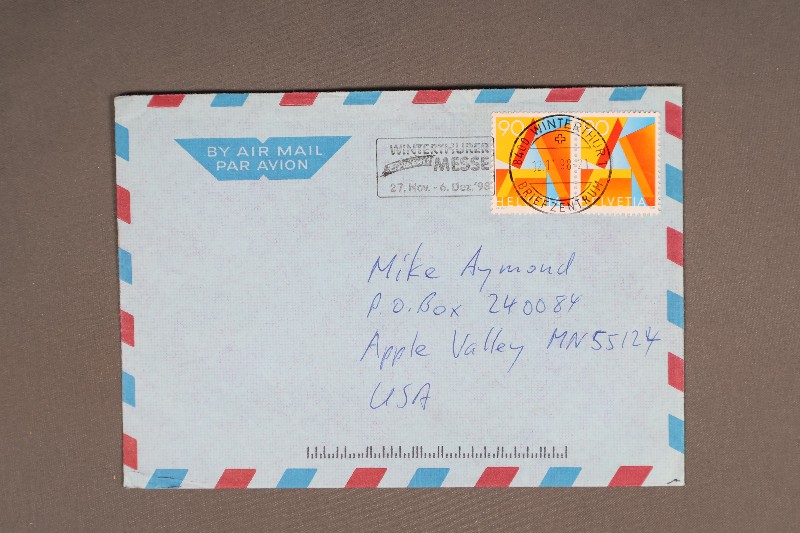 BY AIR MAIL
PAR AVION
WINTERTHURER
MESSE
27. Nov. - 6. Dez. '98
90
8400 WINTERTHUR 1
BRIEFZENTRUM
HELVETIA
Mike Aymond
P.O. Box 240084
Apple Valley MN 55124
USA